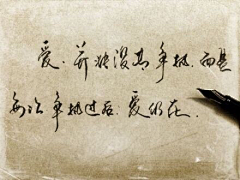 爱，并非没有争执，而是
每次争执过后，爱仍在。